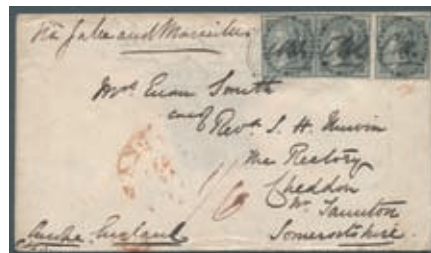 Via Galle and Marseilles
Mrs Euan Smith
care of Revd S. H.
The Rectory
Cheddon
Nr Taunton
Somersetshire.
Europe. England
1/6